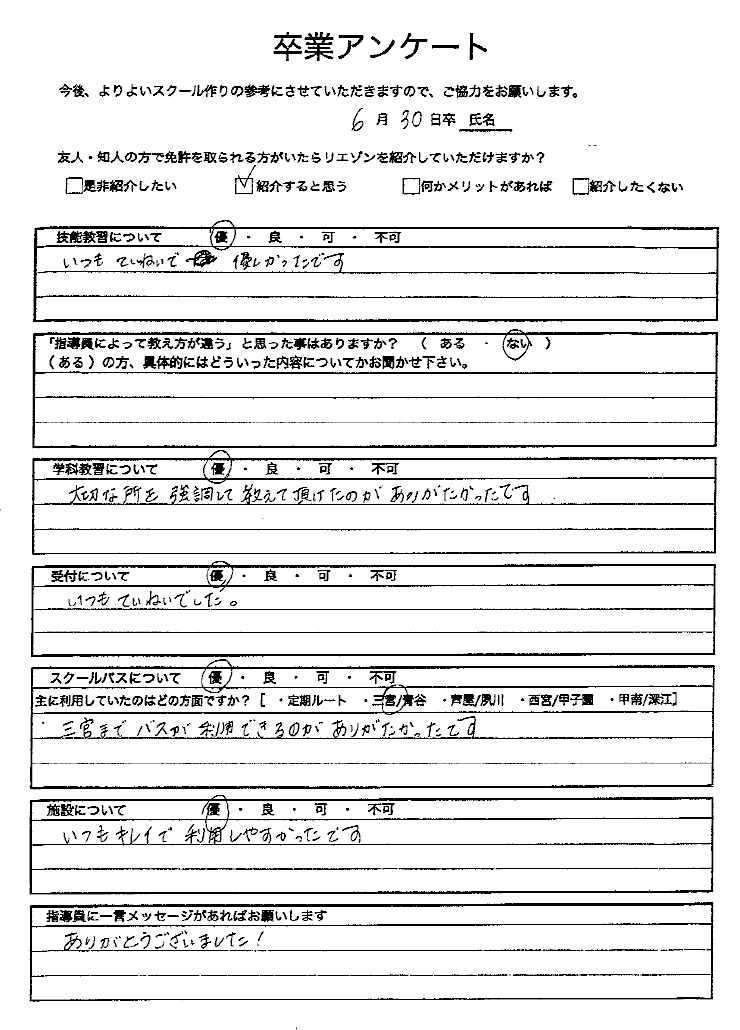 卒業アンケート
今後、よりよいスクール作りの参考にさせていただきますので、ご協力をお願いします。
6月30日卒 氏名
友人・知人の方で免許を取られる方がいたらリエゾンを紹介していただけますか?
是非紹介したい 紹介すると思う 何かメリットがあれば 紹介したくない
技能教習について 優・良・可・不可
いつもていねいで 優しかったです
「指導員によって教え方が違う」と思った事はありますか? ( ある ・ ない )
(ある)の方、具体的にはどういった内容についてかお聞かせ下さい。
学科教習について 優・良・可・不可
大切な所を強調して教えて頂けたのがありがたかったです
受付について 優・良・可・不可
いつもていねいでした。
スクールバスについて 優・良・可・不可
主に利用していたのはどの方面ですか? [ ・定期ルート ・三宮/青谷 ・芦屋/夙川 ・西宮/甲子園 ・甲南/深江]
三宮までバスが利用できるのがありがたかったです
施設について 優・良・可・不可
いつもキレイで利用しやすかったです
指導員に一言メッセージがあればお願いします
ありがとうございました!